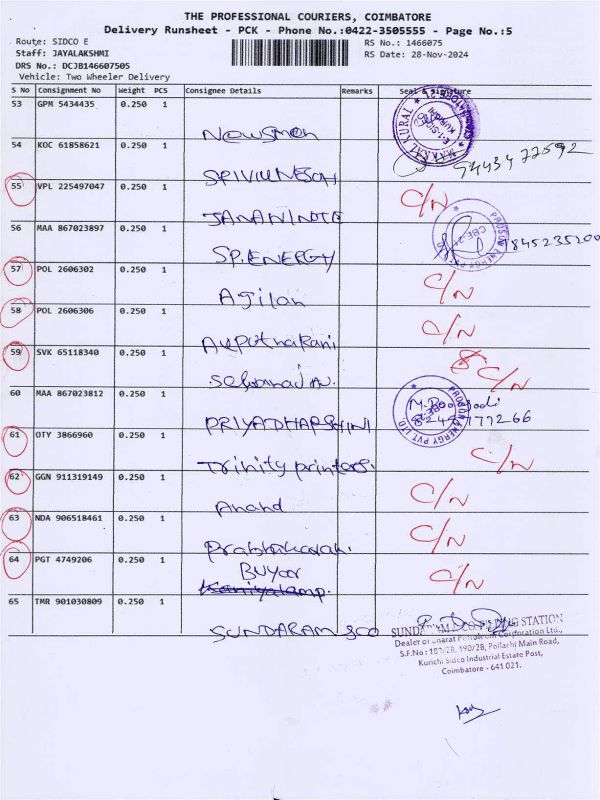 THE PROFESSIONAL COURIERS, COIMBATORE
Delivery Runsheet - PCK - Phone No.:0422-3505555 - Page No.:5
Route: SIDCO E RS No.: 1466075
Staff: JAYALAKSHMI RS Date: 28-Nov-2024
DRS No.: DCJB146607505
Vehicle: Two Wheeler Delivery
S No Consignment No Weight PCS Consignee Details Remarks Seal & signature
53 GPM 5434435 0.250 1
Newsmon
54 KOC 61858621 0.250 1
9443477592
55 VPL 225497047 0.250 1 C/N
56 MAA 867023897 0.250 1
SP.ENERGY 1845235200
57 POL 2606302 0.250 1 C/N
Ajilan
58 POL 2606306 0.250 1 C/N
59 SVK 65118340 0.250 1 C/N
60 MAA 867023812 0.250 1
PRIYADHARSHINI
61 OTY 3866960 0.250 1 C/N
Trinity printers.
62 GGN 911319149 0.250 1 C/N
Anand
63 NDA 906518461 0.250 1 C/N
Prabhakaran.
64 PGT 4749206 0.250 1 C/N
Buyor
65 TMR 901030809 0.250 1
SUNDARAM SCO
FILLING STATION
Dealer of Bharat Petroleum Corporation Ltd.,
S.F.No : 189/2B, 190/2B, Pollachi Main Road,
Kurichi Sidco Industrial Estate Post,
Coimbatore - 641 021.